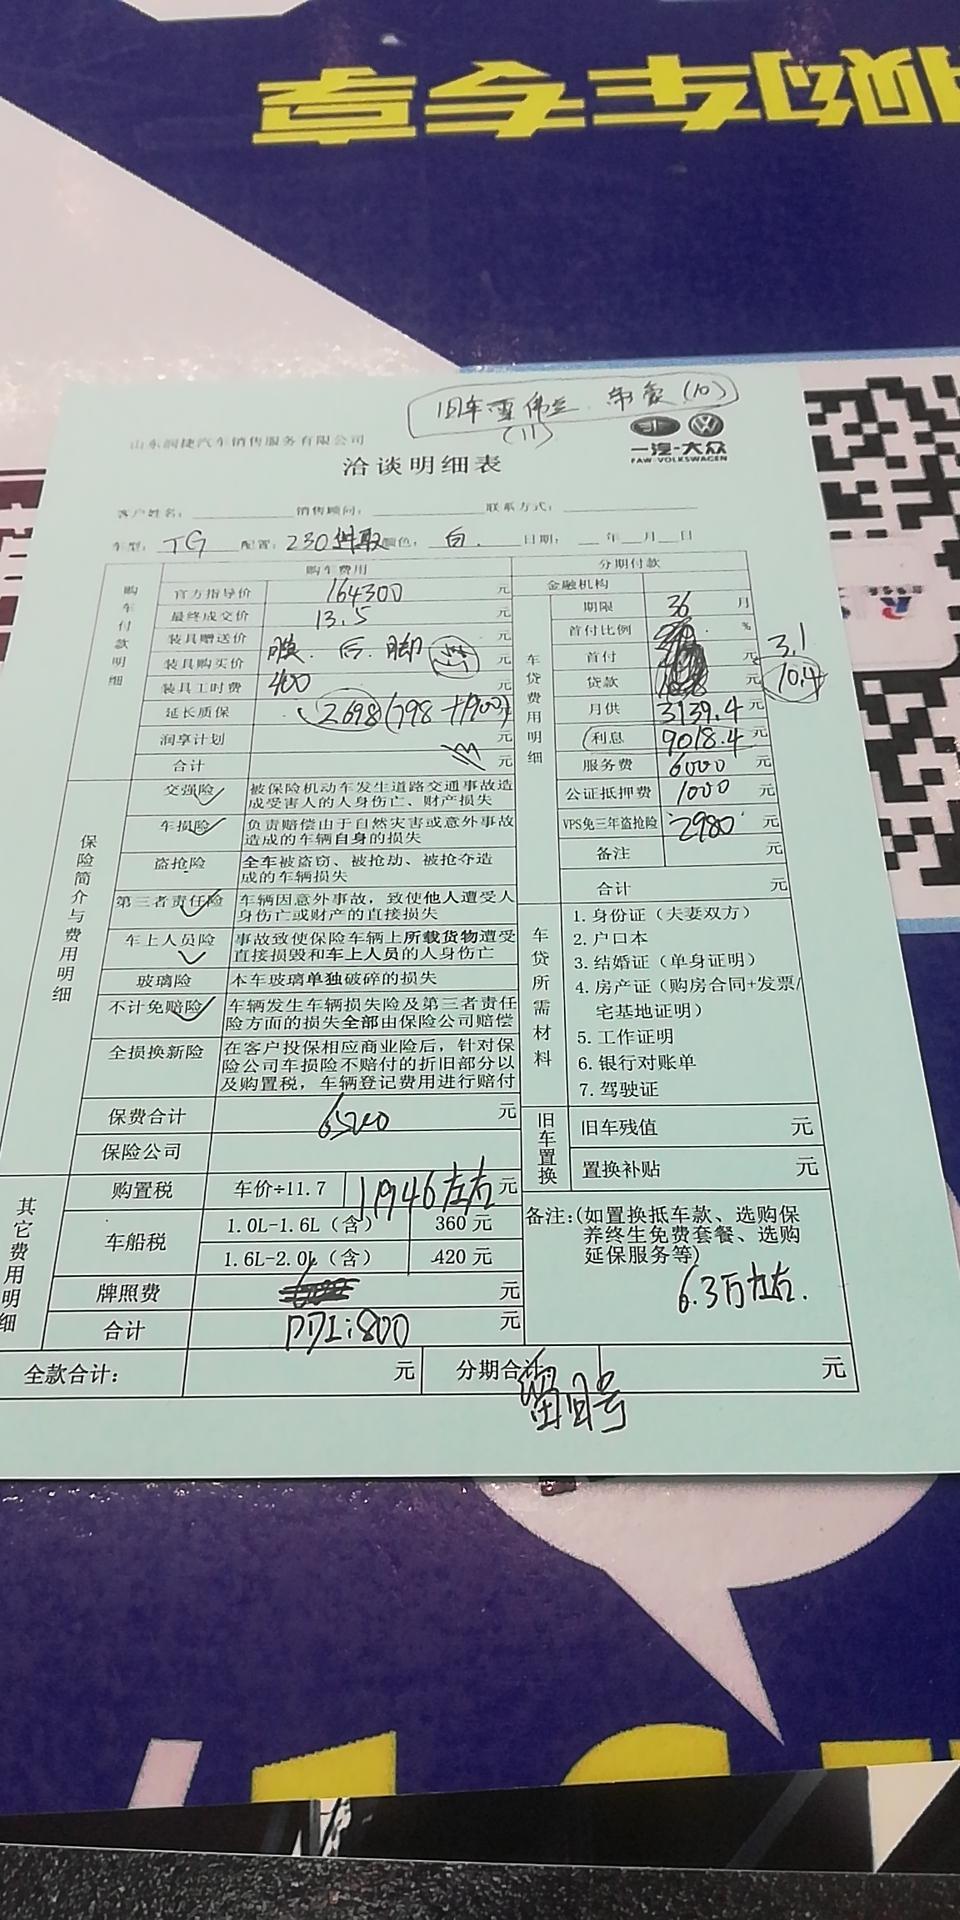 购车专享
旧车雪佛兰 帝豪(10)
(11)
山东润捷汽车销售服务有限公司
一汽-大众
FAW-VOLKSWAGEN
洽谈明细表
客户姓名: 销售顾问: 联系方式:
车型: TG 配置: 230进取 颜色: 白. 日期: 年 月 日
购车付款明细
购车费用
官方指导价 164300 元
最终成交价 13.5 元
装具赠送价 元
装具购买价 膜. 后. 脚 元
装具工时费 400 元
延长质保 2698(798+1900)元
润享计划
合计 元
分期付款
金融机构
车贷费用明细
期限 36 月
首付比例 %
首付 元 3.1
贷款 元 10.4
月供 3139.4 元
利息 9018.4 元
服务费 6000 元
公证抵押费 1000 元
VPS免三年盗抢险 2980 元
备注 元
合计 元
保险简介与费用明细
交强险 被保险机动车发生道路交通事故造
成受害人的人身伤亡、财产损失
车损险 负责赔偿由于自然灾害或意外事故
造成的车辆自身的损失
盗抢险 全车被盗窃、被抢劫、被抢夺造
成的车辆损失
第三者责任险 车辆因意外事故，致使他人遭受人
身伤亡或财产的直接损失
车上人员险 事故致使保险车辆上所载货物遭受
直接损毁和车上人员的人身伤亡
玻璃险 本车玻璃单独破碎的损失
不计免赔险 车辆发生车辆损失险及第三者责任
险方面的损失全部由保险公司赔偿
全损换新险 在客户投保相应商业险后，针对保
险公司车损险不赔付的折旧部分以
及购置税，车辆登记费用进行赔付
保费合计 6500 元
保险公司
车贷所需材料
1. 身份证（夫妻双方）
2. 户口本
3. 结婚证（单身证明）
4. 房产证（购房合同+发票/
宅基地证明）
5. 工作证明
6. 银行对账单
7. 驾驶证
旧车置换
旧车残值 元
置换补贴 元
其它费用明细
购置税 车价÷11.7 11946左右 元
车船税 1.0L-1.6L（含） 360 元
1.6L-2.0L（含） 420 元
牌照费 元
合计 PDI:800 元
备注:(如置换抵车款、选购保
养终生免费套餐、选购
延保服务等)
6.3万左右.
全款合计: 元 分期合计: 元
留旧号